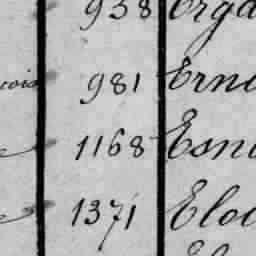 938 Erga
cois 981 Erne
1168 Esn
1371 Eloi